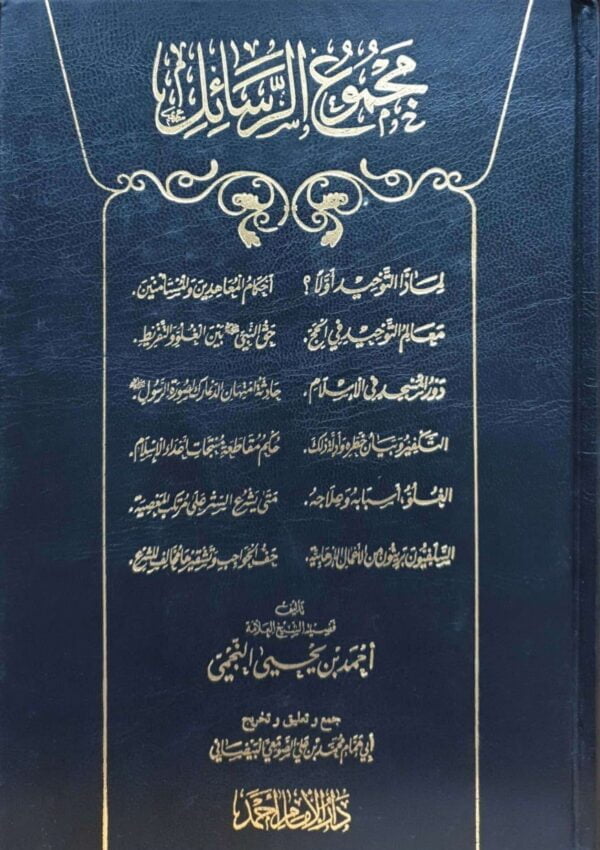 مجموع الرسائل
لماذا التوحيد أولاً؟
معالم التوحيد في الحج.
دور المسجد في الإسلام.
التكفير وبيان خطره وأدلة ذلك.
الغلو، أسبابه وعلاجه.
السلفيون بريئون من الأعمال الإرهابية.
أحكام المعاهدين والمستأمنين.
حق النبي ﷺ بين الغلو والتفريط.
حادثة امتهان الدنمارك لصورة الرسول ﷺ
حكم مقاطعة منتجات أعداء الإسلام.
متى يشرع الستر على مرتكب المعصية.
حف الحواجب وتشقيرها مخالف للشرع.
تأليف
فضيلة الشيخ العلامة
أحمد بن يحيى النجمي
جمع و تعليق و تخريج
أبي همام محمد بن علي الصومعي البيضاني
دار الإمام أحمد